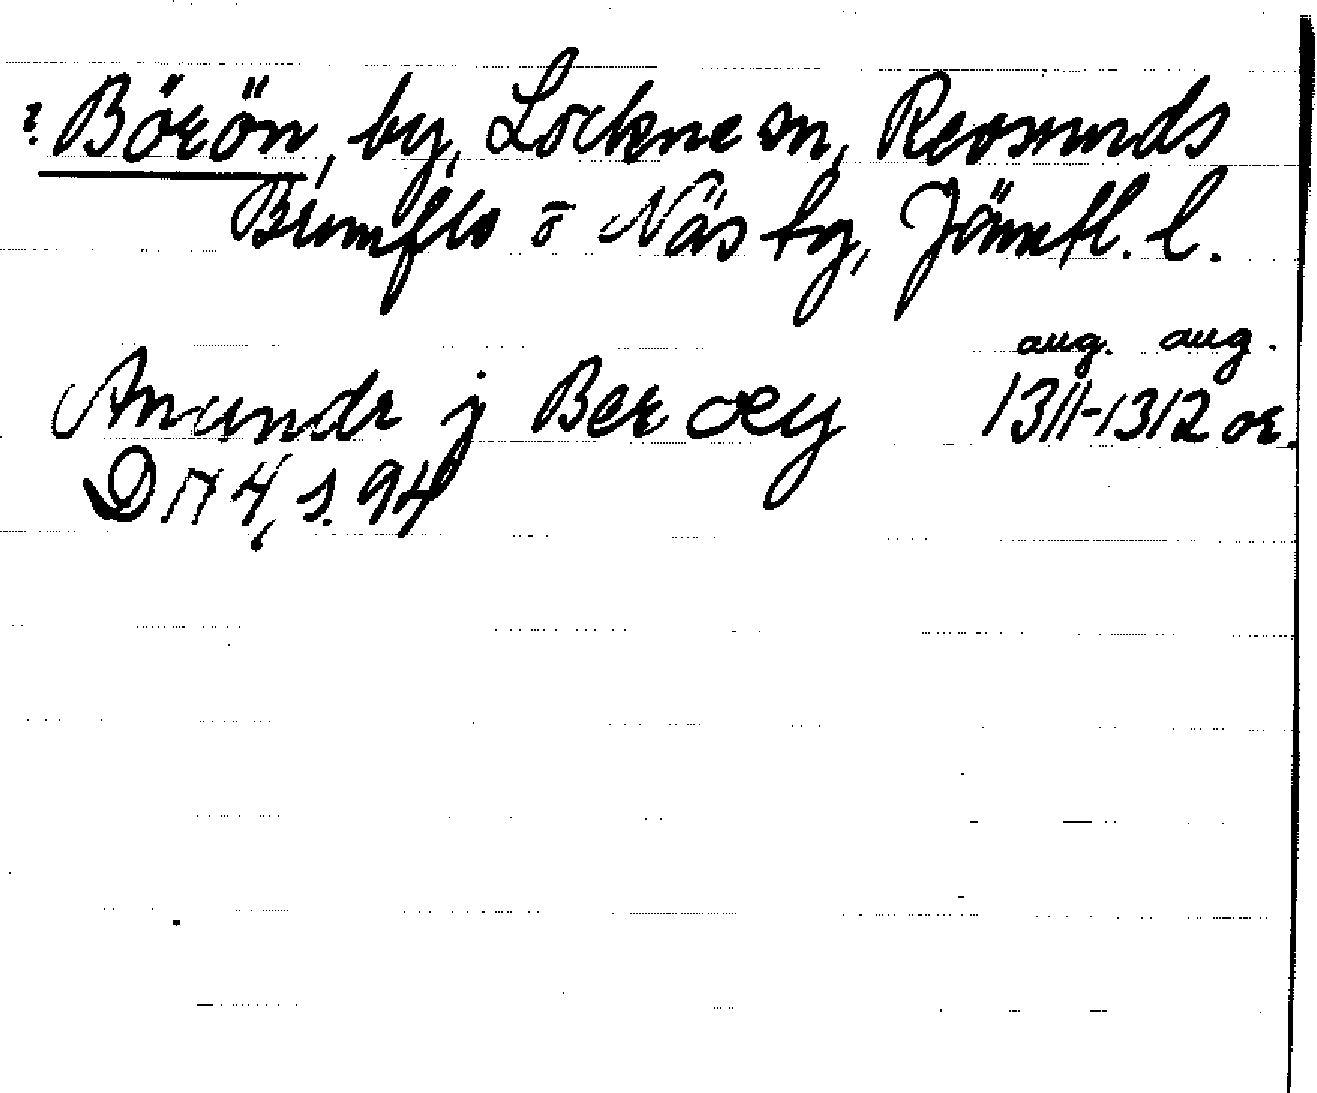 ? Börön, by, Lockne sn, Revsunds
Brunflo o Näs tg, Jämtl. l.
aug. aug.
Anundr j Ber œy 1311-1312 or.
DN 4, s. 94